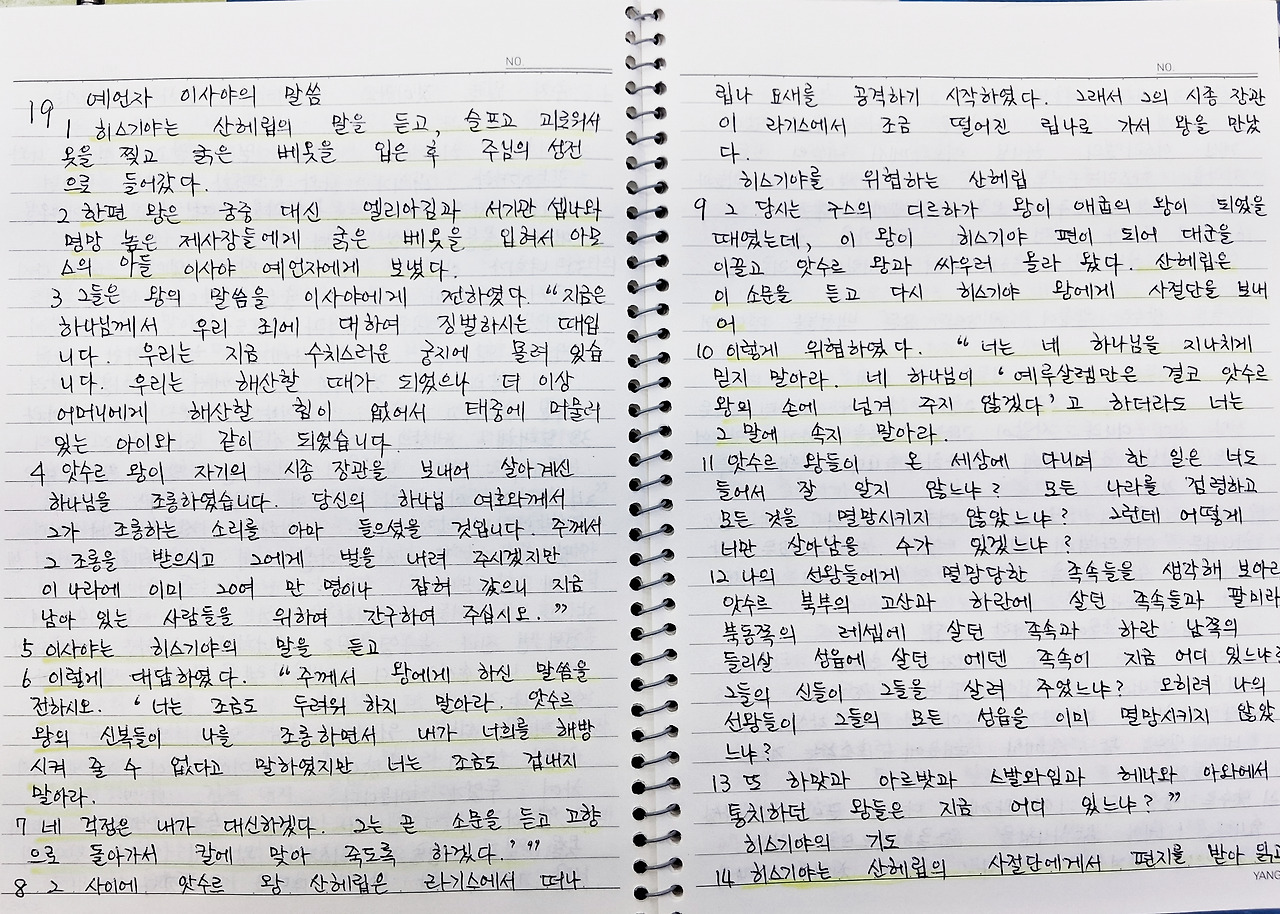 NO.
19 예언자 이사야의 말씀
1 히스기야는 산헤립의 말을 듣고, 슬프고 괴로워서
옷을 찢고 굵은 베옷을 입은 후 주님의 성전
으로 들어갔다.
2 한편 왕은 궁중 대신 엘리아김과 서기관 셉나와
명망 높은 제사장들에게 굵은 베옷을 입혀서 아모
스의 아들 이사야 예언자에게 보냈다.
3 그들은 왕의 말씀을 이사야에게 전하였다. "지금은
하나님께서 우리 죄에 대하여 징벌하시는 때입
니다. 우리는 지금 수치스러운 궁지에 몰려 있습
니다. 우리는 해산할 때가 되었으나 더 이상
어머니에게 해산할 힘이 없어서 태중에 머물러
있는 아이와 같이 되었습니다.
4 앗수르 왕이 자기의 시종 장관을 보내어 살아계신
하나님을 조롱하였습니다. 당신의 하나님 여호와께서
그가 조롱하는 소리를 아마 들으셨을 것입니다. 주께서
그 조롱을 받으시고 그에게 벌을 내려 주시겠지만
이 나라에 이미 20여 만 명이나 잡혀 갔으니 지금
남아 있는 사람들을 위하여 간구하여 주십시오."
5 이사야는 히스기야의 말을 듣고
6 이렇게 대답하였다. "주께서 왕에게 하신 말씀을
전하시오. '너는 조금도 두려워 하지 말아라. 앗수르
왕의 신복들이 나를 조롱하면서 내가 너희를 해방
시켜 줄 수 없다고 말하였지만 너는 조금도 겁내지
말아라.
7 네 걱정은 내가 대신하겠다. 그는 곧 소문을 듣고 고향
으로 돌아가서 칼에 맞아 죽도록 하겠다.'"
8 그 사이에 앗수르 왕 산헤립은 라기스에서 떠나
NO.
립나 요새를 공격하기 시작하였다. 그래서 그의 시종 장관
이 라기스에서 조금 떨어진 립나로 가서 왕을 만났
다.
히스기야를 위협하는 산헤립
9 그 당시는 구스의 디르하가 왕이 애굽의 왕이 되었을
때였는데, 이 왕이 히스기야 편이 되어 대군을
이끌고 앗수르 왕과 싸우러 올라 왔다. 산헤립은
이 소문을 듣고 다시 히스기야 왕에게 사절단을 보내
어
10 이렇게 위협하였다. "너는 네 하나님을 지나치게
믿지 말아라. 네 하나님이 '예루살렘만은 결코 앗수르
왕의 손에 넘겨 주지 않겠다'고 하더라도 너는
그 말에 속지 말아라.
11 앗수르 왕들이 온 세상에 다니며 한 일은 너도
들어서 잘 알지 않느냐? 모든 나라를 점령하고
모든 것을 멸망시키지 않았느냐? 그런데 어떻게
너만 살아남을 수가 있겠느냐?
12 나의 선왕들에게 멸망당한 족속들을 생각해 보아라
앗수르 북부의 고산과 하란에 살던 족속들과 팔미라
북동쪽의 레셉에 살던 족속과 하란 남쪽의
들라살 성읍에 살던 에덴 족속이 지금 어디 있느냐?
그들의 신들이 그들을 살려 주었느냐? 오히려 나의
선왕들이 그들의 모든 성읍을 이미 멸망시키지 않았
느냐?
13 또 하맛과 아르밧과 스발와임과 헤나와 아와에서
통치하던 왕들은 지금 어디 있느냐?"
히스기야의 기도
14 히스기야는 산헤립의 사절단에게서 편지를 받아 읽고
YANG